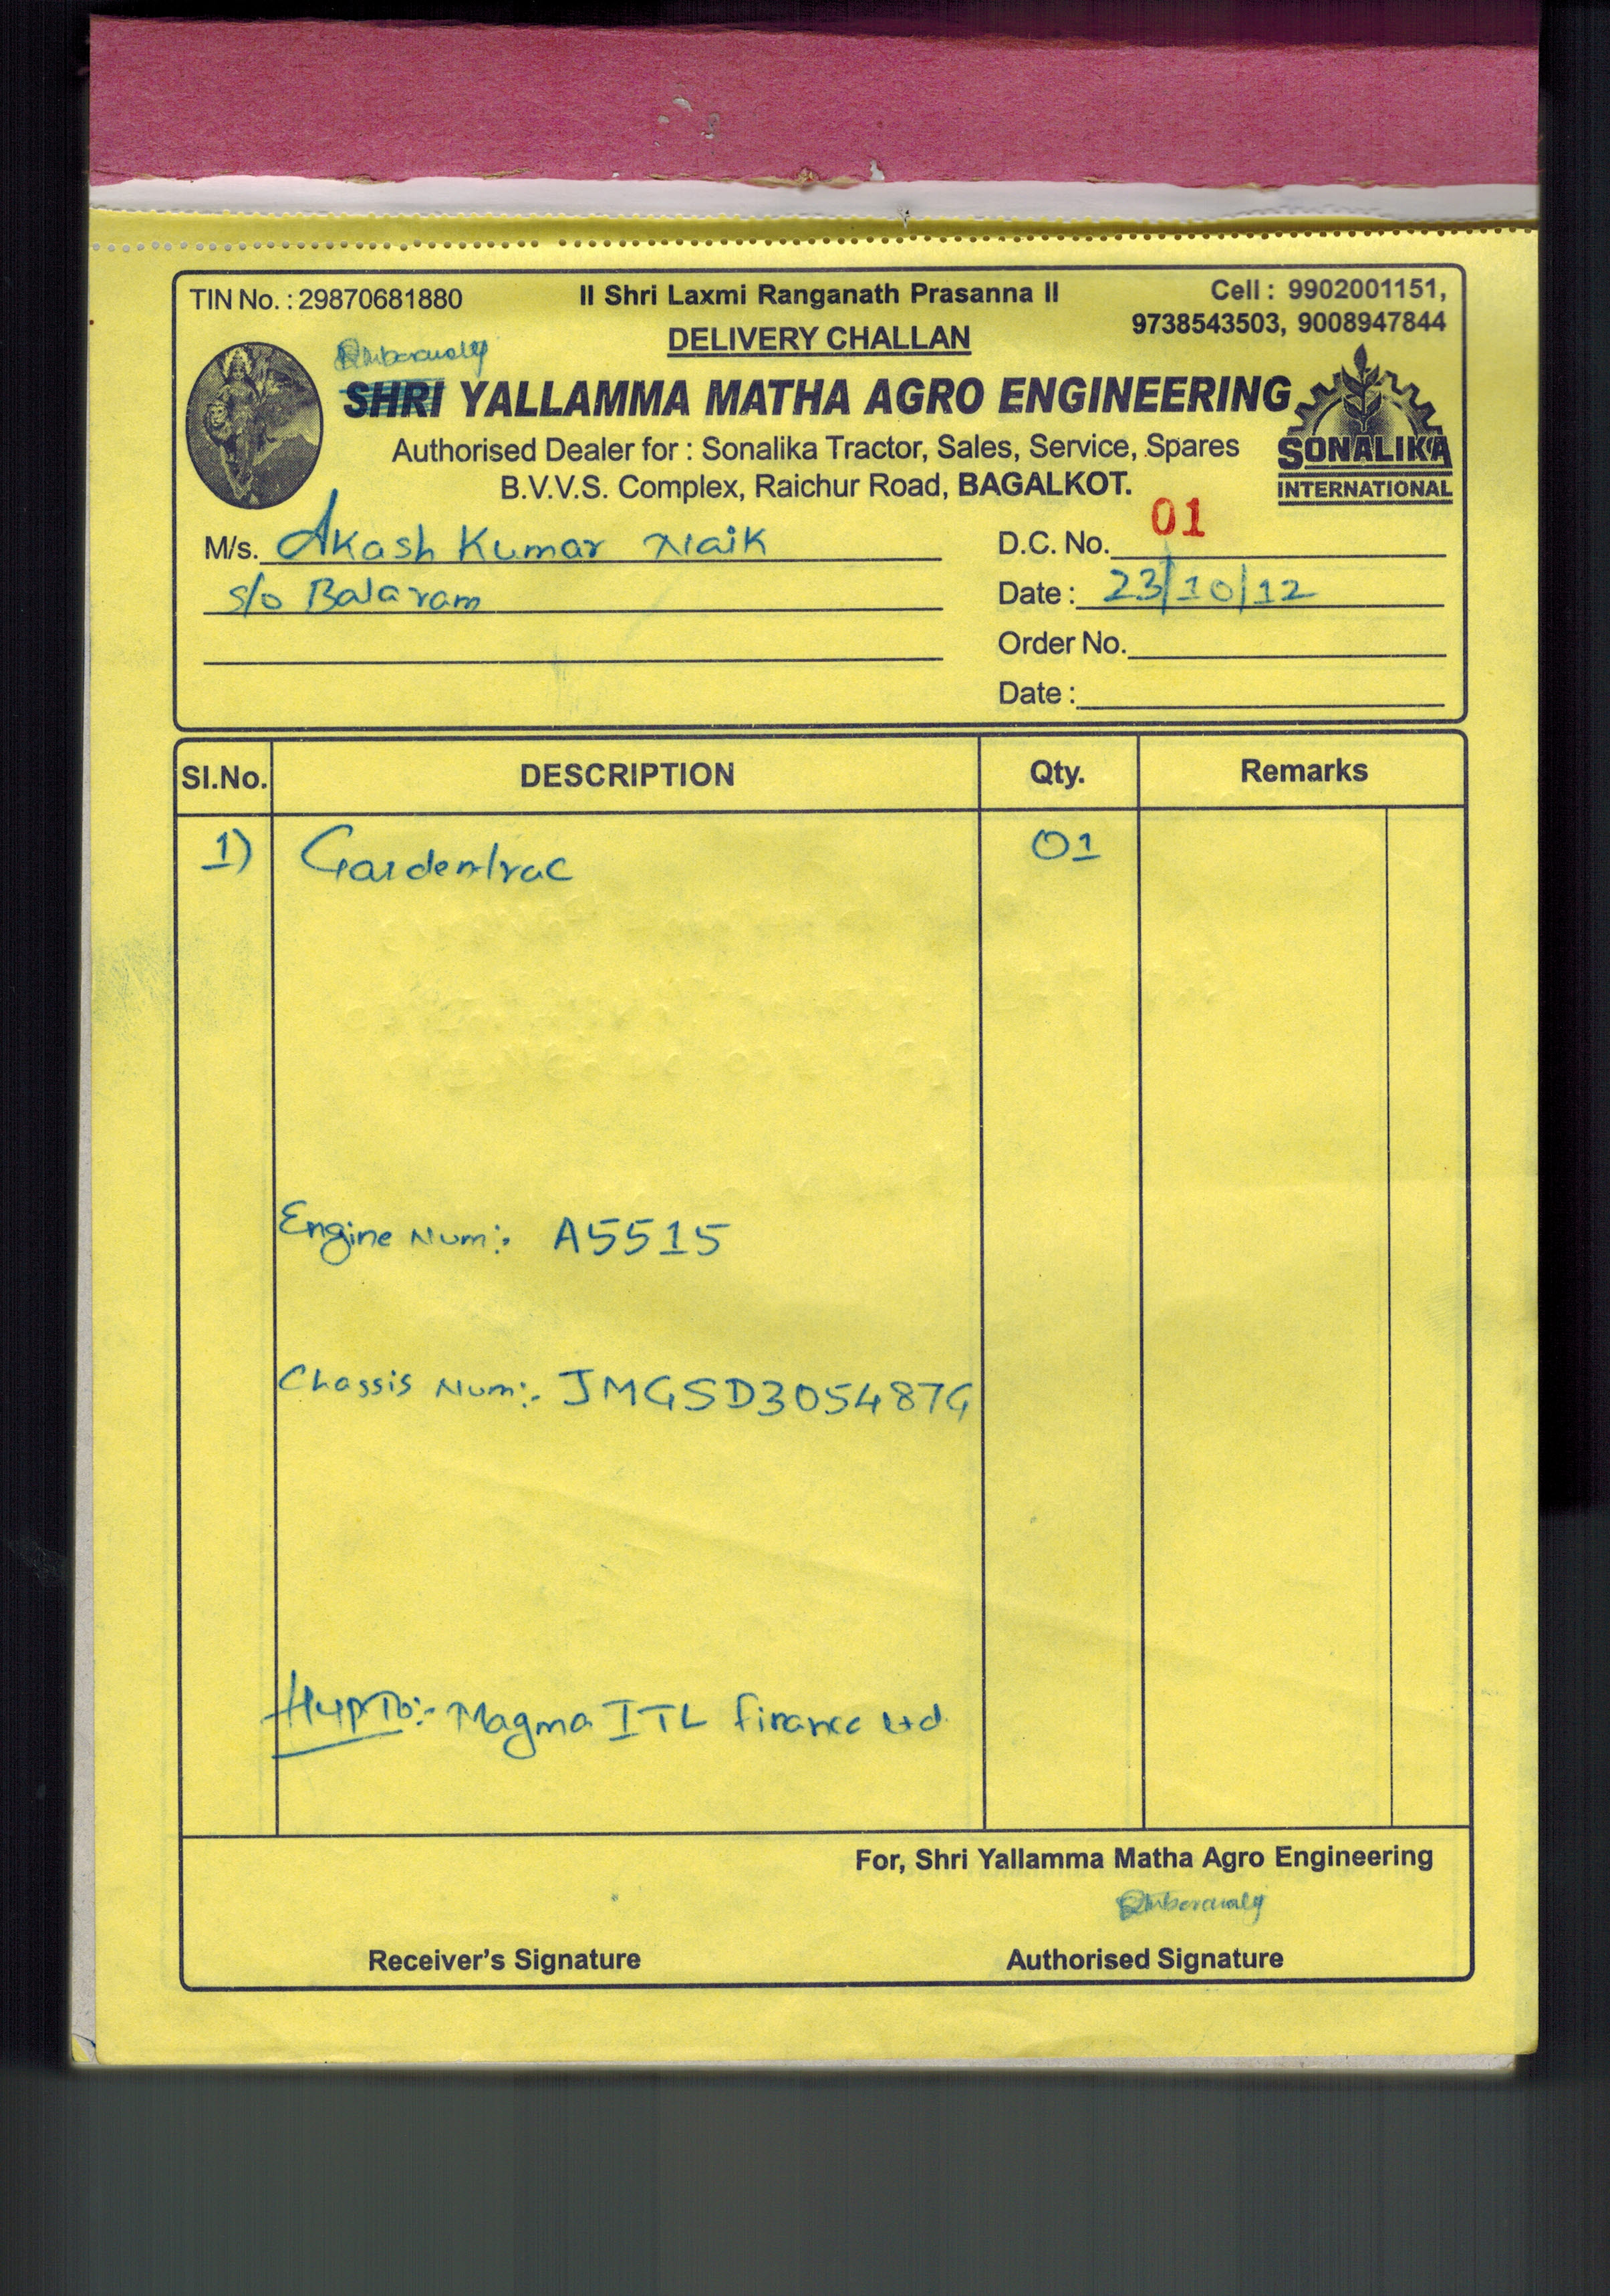 TIN No. : 29870681880
II Shri Laxmi Ranganath Prasanna II
Cell : 9902001151,
9738543503, 9008947844
DELIVERY CHALLAN
SHRI YALLAMMA MATHA AGRO ENGINEERING
Authorised Dealer for : Sonalika Tractor, Sales, Service, Spares
B.V.V.S. Complex, Raichur Road, BAGALKOT.
SONALIKA
INTERNATIONAL
M/s. Akash Kumar Naik
S/o Balaram
D.C. No. 01
Date : 23/10/12
Order No.
Date :
Sl.No. DESCRIPTION Qty. Remarks
1) Gardentrac 01
Engine Num:- A5515
Chassis Num:- JMGSD305487G
HypTo:- Magma ITL finance Ltd
For, Shri Yallamma Matha Agro Engineering
Receiver's Signature
Authorised Signature